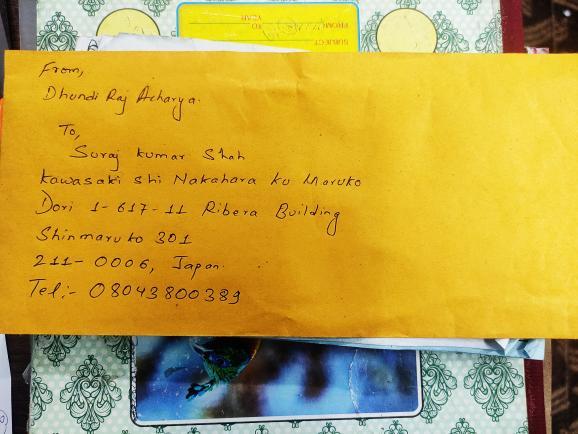 YEAR
FROM TO
SUBJECT
From,
Dhundi Raj Acharya.
To,
Suraj kumar Shah
Kawasaki shi Nakahara ku Maruko
Dori 1-617-11 Ribera Building
Shinmaruko 301
211-0006, Japan.
Tel:- 08043800389